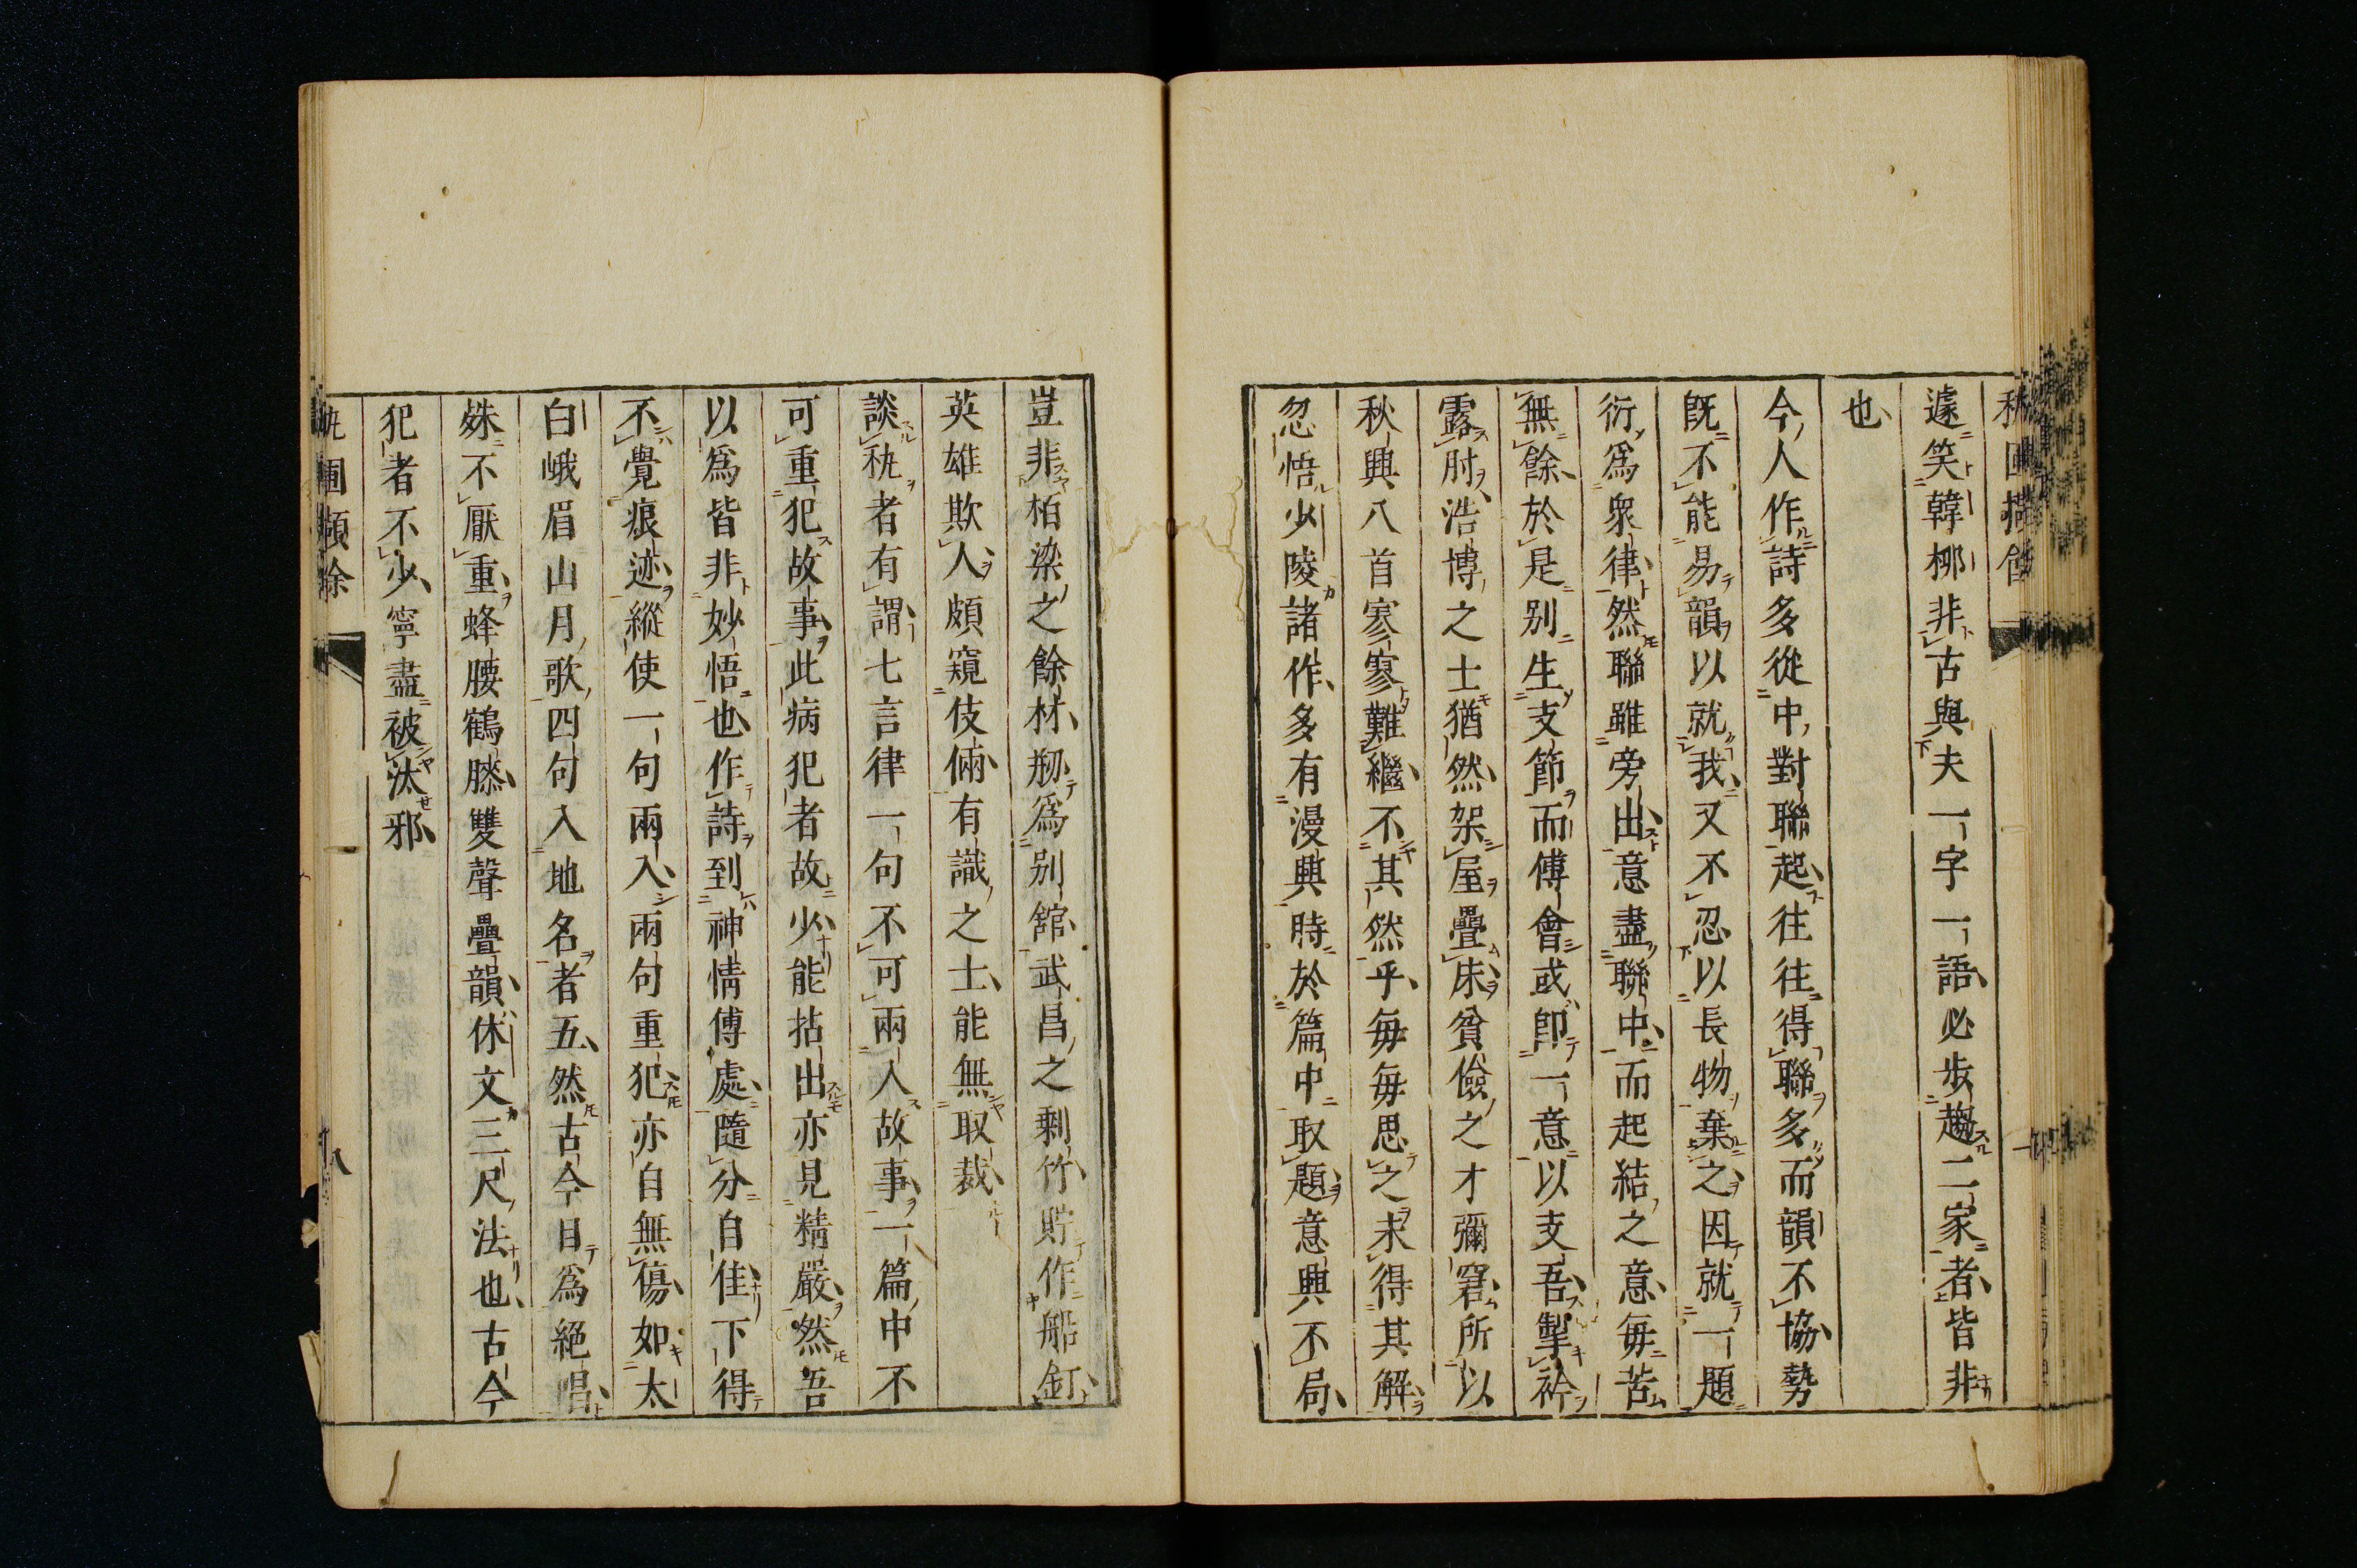 遽笑韓柳非古與夫一字一語必步趨二家者皆非
也
今人作詩多從中對聯起往往得聯多而韻不協勢
旣不能易韻以就我又不忍以長物棄之因就一題
衍爲衆律然聯雖旁出意盡聯中而起結之意每苦
無餘於是别生支節而傅會或卽一意以支吾掣衿
露肘浩博之士猶然架屋疊床貧儉之才彌窘所以
秋興八首寥寥難繼不其然乎每每思之未得其解
忽悟少陵諸作多有漫興時於篇中取題意興不局
豈非栢梁之餘材剏爲别舘武昌之剩竹貯作船釘
英雄欺人頗窺伎倆有識之士能無取裁
談秇者有謂七言律一句不可兩入故事一篇中不
可重犯故事此病犯者故少能拈出亦見精嚴然吾
以爲皆非妙悟也作詩到神情傅處隨分自佳下得
不覺痕迹縱使一句兩入兩句重犯亦自無傷如太
白峨眉山月歌四句入地名者五然古今目爲絕唱
殊不厭重蜂腰鶴膝雙聲疊韻休文三尺法也古今
犯者不少寧盡被汰邪
秇圃擷餘
八